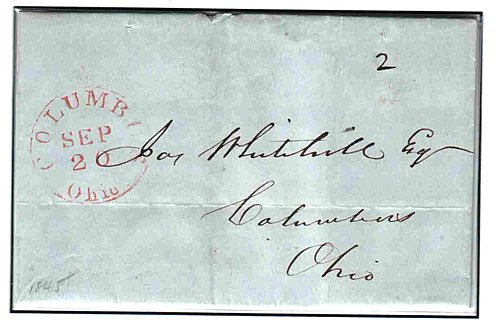 2
COLUMB
SEP
20
Ohio
Jos Whitehill Esq
Columbus
Ohio
1845